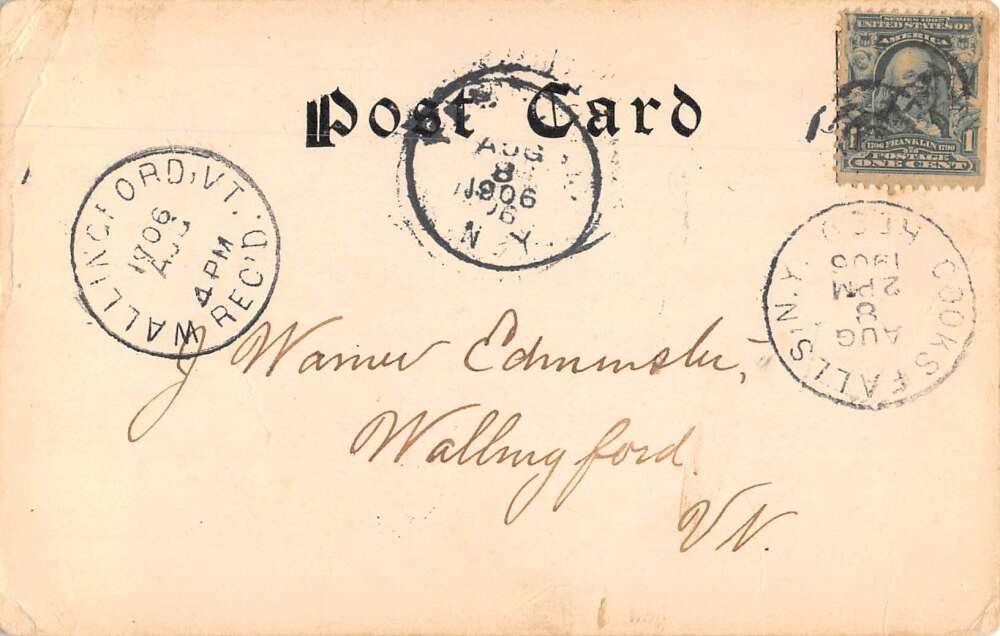 Post Card
SERIES 1902
UNITED STATES OF
AMERICA
1706 FRANKLIN 1790
POSTAGE
1 1
ONE CENT
AUG
8
1906
N Y
WALLINGFORD, VT.
1906
AUG
4 PM
REC'D
COOKS FALLS N.Y.
AUG
8
2 PM
1906
REC'D
J Warner Edminster,
Wallingford
Vt.